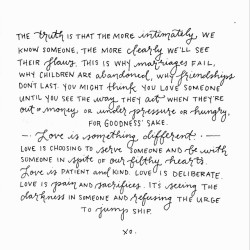 THE truth IS THAT THE MORE intimately WE
KNOW SOMEONE, THE MORE clearly WE'LL SEE
THEIR flaws. THIS IS WHY marriages FAIL,
WHY CHILDREN ARE abandoned, WHY friendships
DON'T LAST. YOU MIGHT THINK YOU LOVE SOMEONE
UNTIL YOU SEE THE WAY THEY ACT WHEN THEY'RE
OUT of MONEY OR UNDER PRESSURE OR hungry,
FOR GOODNESS' SAKE.
Love is something different.
LOVE IS CHOOSING TO serve SOMEONE AND be with
SOMEONE IN spite OF OUR filthy hearts.
Love is PATIENT and KIND. LOVE IS DELIBERATE.
LOVE IS pain AND sacrifices. IT'S seeing the
darkness IN SOMEONE AND refusing THE URGE
TO jump SHIP.
xo.